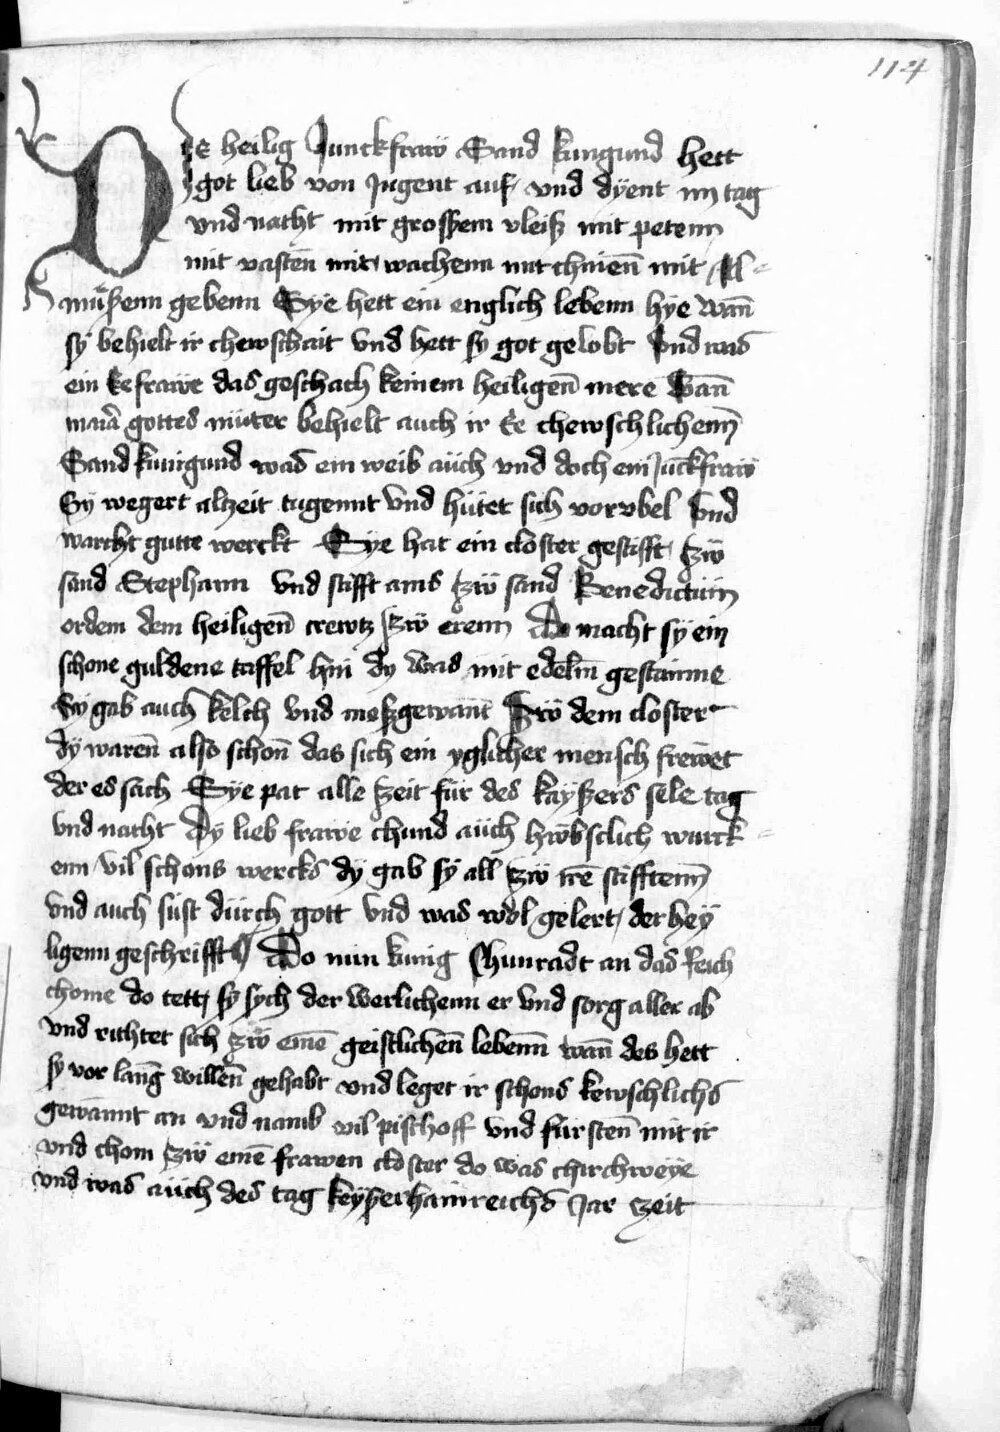 114
DIe heilig Junckfraw Sand kungund hett
got lieb von Jugent auf und dyent im tag
und nacht mit grossem vleiß mit petenn
mit vasten mit wachenn mit chnienn mit All-
musenn gebenn Sye hett ein englich lebenn hye wann
sy behielt ir chewschait Und hett sy got gelobt Und was
ein Eefrawe das geschach keinem heiligenn mere Wann
maria gottes muter behielt auch ir Ee chewschlichenn
Sand kunigund was ein weib auch und doch ein Junckfraw
Sy wegert alzeit tugennt Und hutet sich vor ubel Und
warcht gutte werckt Sye hat ein closter gestifft zw
sand Stephann Und stifft ains zw sand Benedictum
ordem dem heiligenn crewtz zw erenn Do macht sy ein
schone guldene taffel hin dy was mit edelm gestainne
Sy gab auch kelch Und meßgewant Zw dem closter
dy warenn also schon das sich ein yglicher mensch frewet
der es sach Sye pat alle zeit fur des kayßers sele tag
Und nacht Dy lieb frawe chund auch hwbsclich wurck-
enn vil schons wercks dy gab sy all zw iren stifftenn
Und auch sust durch gott Und was wol gelert der hey
ligenn geschrifft Do nun kunig Chunradt an das Reich
chome do tett sy sych der werlichenn er Und sorg aller ab
Und richtet sich zw einem geistlichenn lebenn wann des hett
sy vor lang willenn gehabt und leget ir schons kewschlichs
gewannt an und namb vil pischoff Und furstenn mit ir
und chom zw einem frawen closter do was chirchweye
und was auch des tag keyßer hainreichs Jar zeit